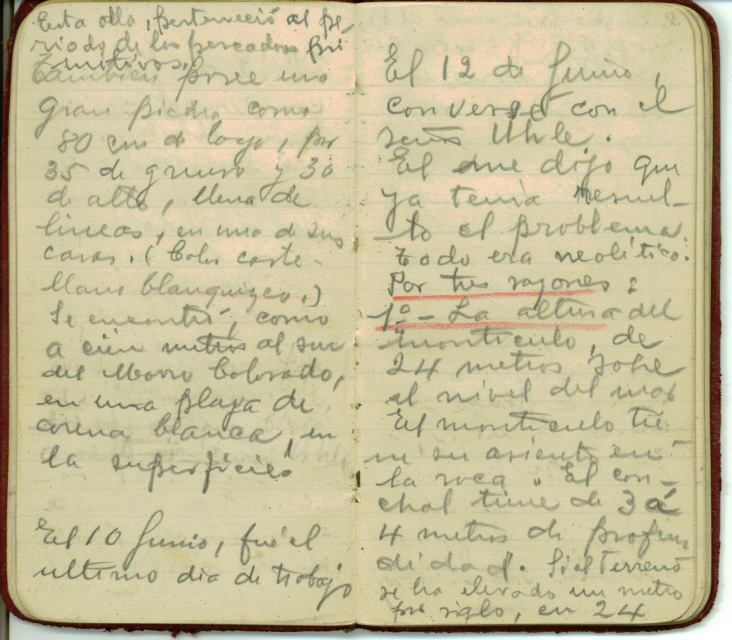 Esta olla, perteneció al pe-
riodo de los pescadores pri
mitivos.
También posee una
gran piedra como
80 cms de largo, por
35 de grueso y 30
de alto, llena de
lineas, en una de sus
caras. (Color caste-
llano blanquizco.)
Se encontró, como
a cien metros al sur
del Morro Colorado,
en una playa de
arena blanca, en
la superficie
El 10 Junio, fué el
ultimo dia de trabajo
El 12 de Junio,
conversé con el
señor Uhle.
El me dijo que
ya tenia resuel-
to el problema.
todo era neolítico.
Por tres razones:
1º - La altura del
monticulo, de
24 metros sobre
el nivel del mar
El monticulo tie-
ne su asiento en
la roca. El con-
chal tiene de 3 á
4 metros de profun
didad. Si el terreno
se ha elevado un metro
por siglo, en 24